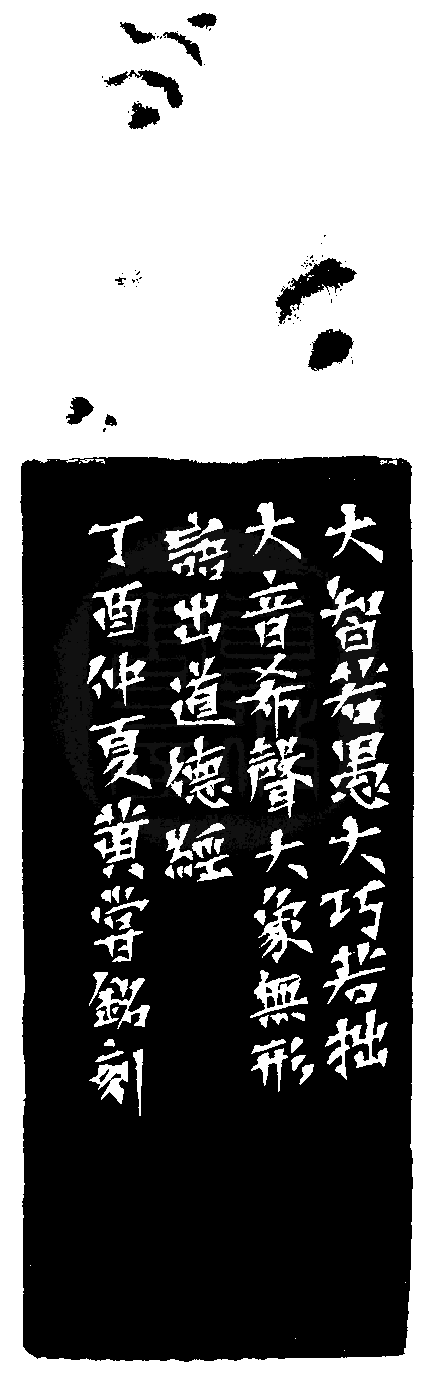 大智若愚大巧若拙
大音希聲大象無形
語出道德經
丁酉仲夏黄嘗銘刻